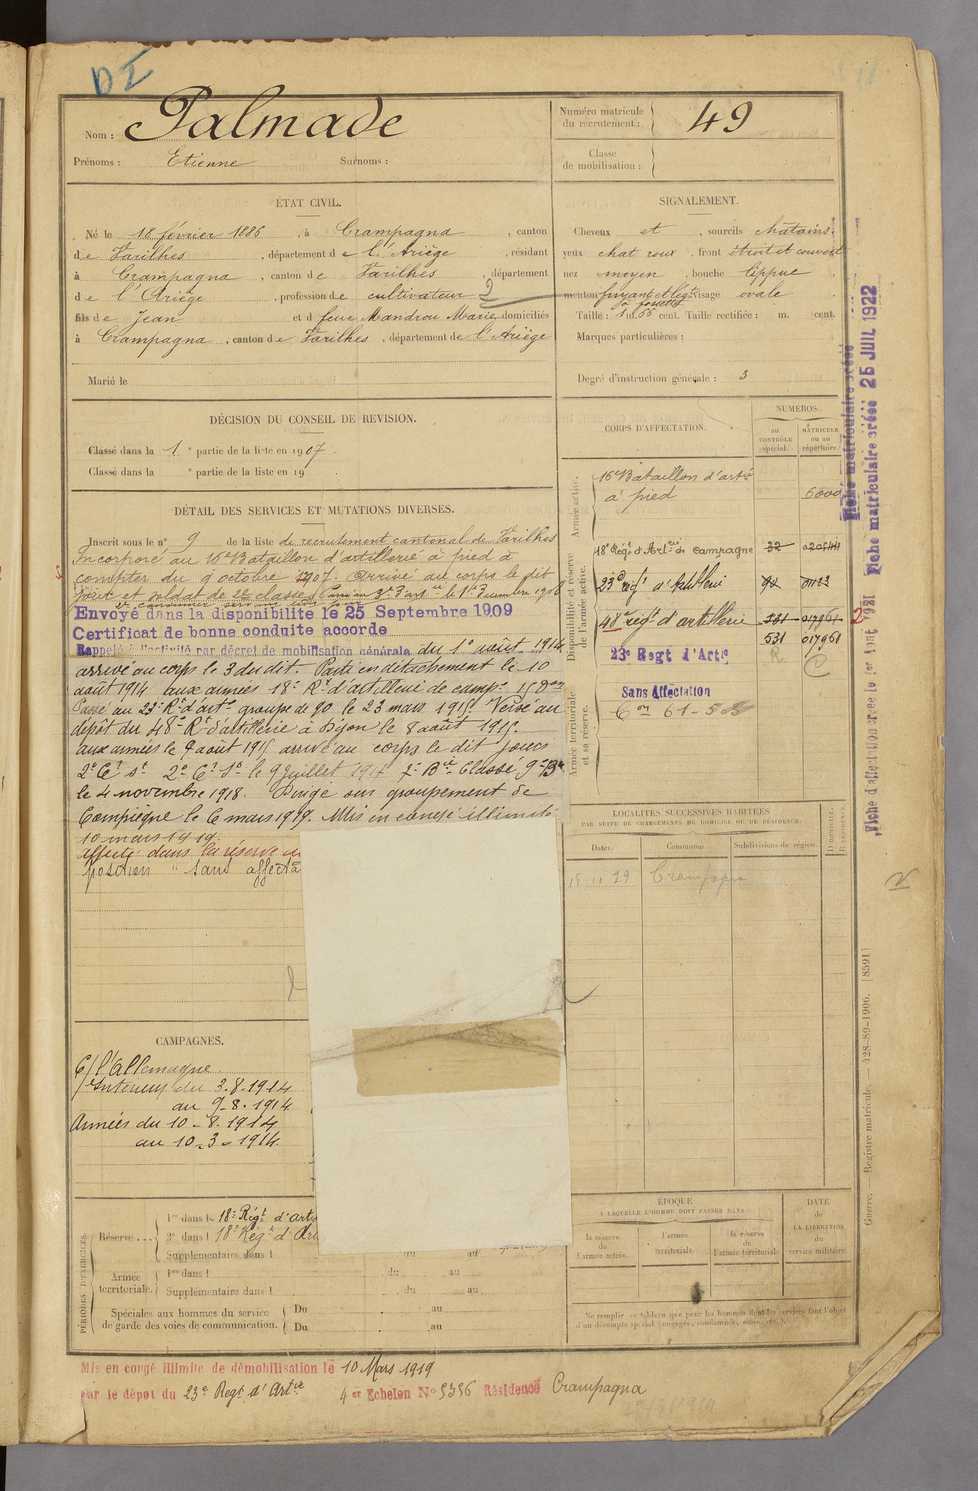 DI
Nom : Palmade
Prénoms : Etienne Surnoms :
Numéro matricule du recrutement : 49
Classe de mobilisation :
ÉTAT CIVIL.
Né le 18 février 1886, à Crampagna, canton
de Varilhes, département de l'Ariège, résidant
à Crampagna, canton de Varilhes, département
de l'Ariège, profession de cultivateur 2
fils de Jean et d feue Mandrou Marie domiciliés
à Crampagna, canton de Varilhes, département de l'Ariège
Marié le
SIGNALEMENT.
Cheveux et , sourcils châtains.
yeux chat roux , front étroit et couvert
nez moyen , bouche lippue
menton fuyant et lég. visage ovale
à fossette
Taille : 1 m. 66 cent. Taille rectifiée : m. cent.
Marques particulières :
Degré d'instruction générale : 3
DÉCISION DU CONSEIL DE REVISION.
Classé dans la 1e partie de la liste en 1907.
Classé dans la e partie de la liste en 19
DÉTAIL DES SERVICES ET MUTATIONS DIVERSES.
Inscrit sous le n° 9 de la liste de recrutement cantonal de Varilhes
Incorporé au 16e Bataillon d'artillerie à pied à
compter du 9 octobre 1907. Arrivé au corps le dit
jour et soldat de 2e classe.
Envoyé dans la disponibilité le 25 Septembre 1909
Certificat de bonne conduite accordé
Rappelé à l'activité par décret de mobilisation générale du 1er août 1914
arrivé au corps le 3 du dit. Parti en détachement le 10
août 1914 aux armées 18e Rt d'artillerie de campe
Passé au 23e Rt d'arte groupe de 90 le 23 mars 1915. Versé au
dépôt du 48e Rt d'artillerie à Dijon le 8 août 1915.
aux armées le 9 août 1915 arrivé au corps le dit jour
le 9 juillet 1917
le 4 novembre 1918. Dirigé sur groupement de
Compiègne le 6 mars 1919. Mis en congé illimité
10 mars 1919.
affecté dans la réserve
position "sans affecta
CORPS D'AFFECTATION.
NUMÉROS
au contrôle spécial.
matricule ou au répertoire.
Armée active.
16e Bataillon d'artie
à pied 6000
Disponibilité et réserve de l'armée active.
18e Régt d'Artrie de campagne 32
23e régt d'Artillerie
48e régt d'artillerie 531 017961
531 017961
23e Regt d'Artie R C
Armée territoriale et sa réserve.
Sans Affectation
LOCALITÉS SUCCESSIVES HABITÉES
PAR SUITE DE CHANGEMENTS DE DOMICILE OU DE RÉSIDENCE.
Dates. Communes. Subdivisions de région. D. DOMICILE. R. RÉSIDENCE.
Crampagna
CAMPAGNES.
C/ l'Allemagne
Intérieur du 3.8.1914
au 9.8.1914
Armées du 10.8.1914
au 10.3.1914
PÉRIODES D'EXERCICES.
Réserve ... 1re dans le 18e Régt d'Art
2e dans l 18e Régt d'Art
Supplémentaire dans l du au
Armée territoriale. 1re dans l du au
Supplémentaire dans l du au
Spéciales aux hommes du service de garde des voies de communication. Du au
Du au
ÉPOQUE
À LAQUELLE L'HOMME DOIT PASSER DANS
la réserve de l'armée active.
l'armée territoriale.
la réserve de l'armée territoriale
DATE de LA LIBÉRATION du service militaire.
Ne remplir ce tableau que pour les hommes dont les services font l'objet
d'un décompte spécial (engagés, condamnés, omis, etc.).
Mis en congé illimité de démobilisation le 10 Mars 1919
par le dépôt du 23e Regt d'Artie 4er Echelon N° 5356 Résidence Crampagna
Fiche matriculaire créée
Fiche matriculaire créée 25 JUIL 1922
Fiche d'affectation créée le 1er Aout 1921
Guerre. — Registre matricule. — 428-89-1906. [8591]